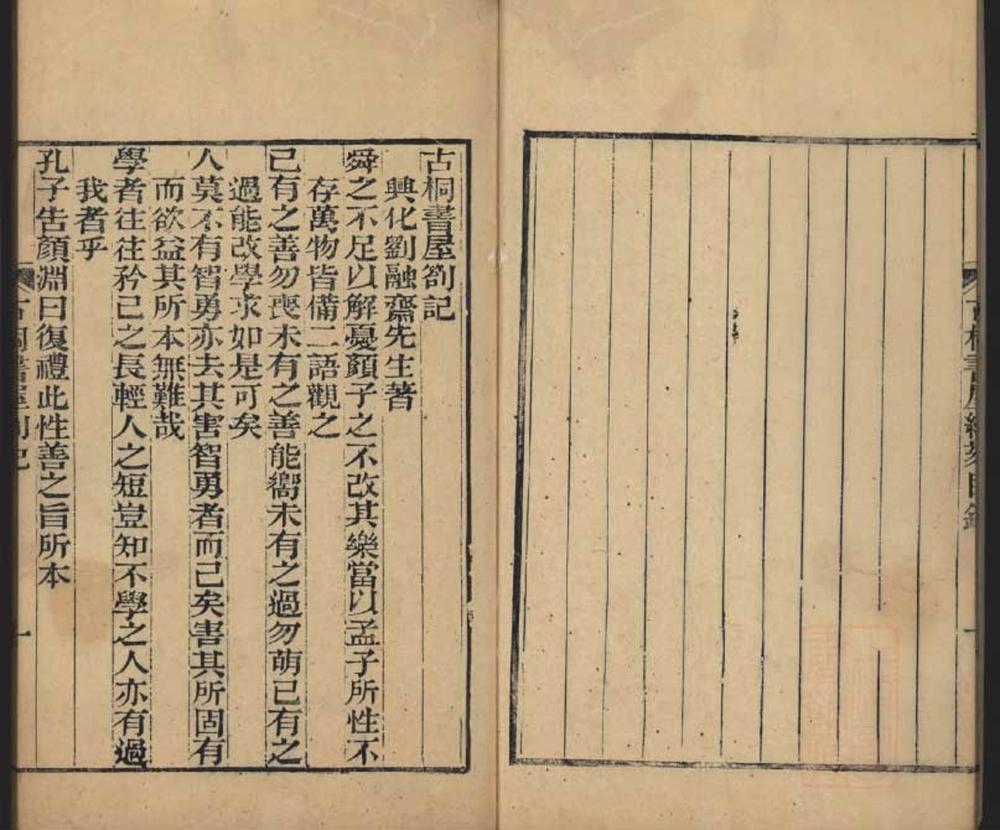 古桐書屋續刻目錄
一
古桐書屋劄記
興化劉融齋先生著
舜之不足以解憂顏子之不改其樂當以孟子所性不
存萬物皆備二語觀之
己有之善勿喪未有之善能嚮未有之過勿萌已有之
過能改學求如是可矣
人莫不有智勇亦去其害智勇者而已矣害其所固有
而欲益其所本無難哉
學者往往矜己之長輕人之短豈知不學之人亦有過
我者乎
孔子告顏淵曰復禮此性善之旨所本
古桐書屋劄記
一